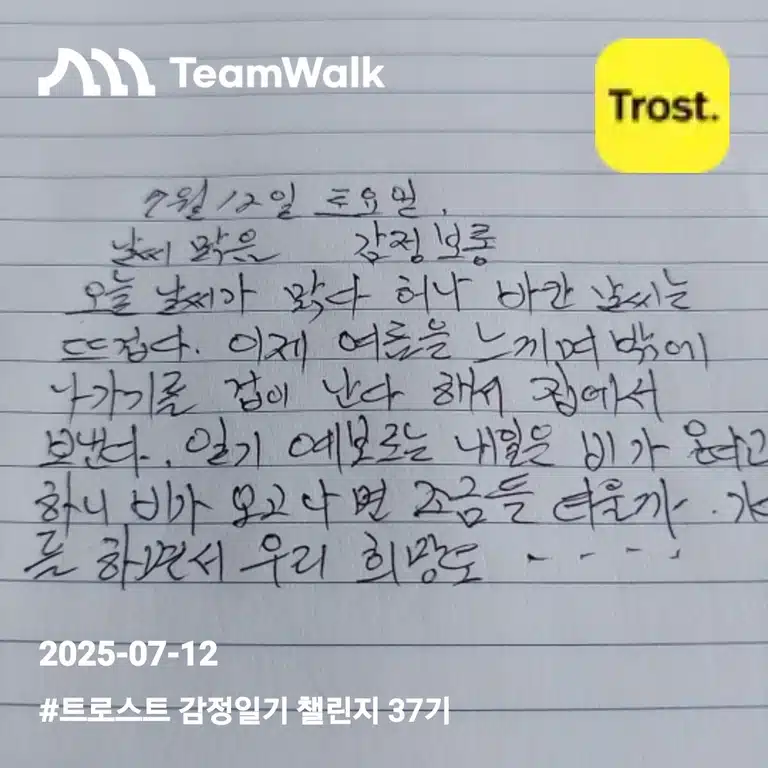 TeamWalk
Trost.
7월 12일 토요일.
날씨 맑은 감정 보통
오늘 날씨가 맑다 허나 바깐 날씨는
뜨겁다. 이제 여름을 느끼며 밖에
나가기를 겁이 난다 해서 집에서
보낸다. 일기 예보로는 내일은 비가 온다고
하니 비가 오고나면 조금 더울까.
를 하면서 우리 희망도 - - - -
2025-07-12
#트로스트 감정일기 챌린지 37기